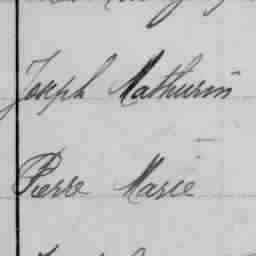 Joseph Mathurin
Pierre Marie